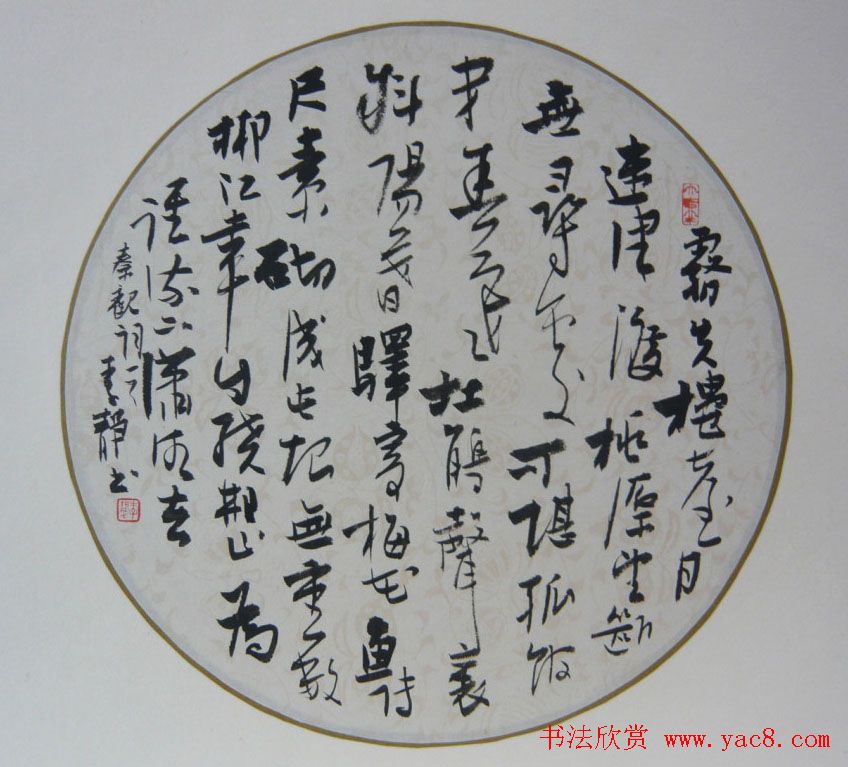 霧失樓臺月
迷津渡桃源望斷
無尋處可堪孤館
閉春寒杜鵑聲裏
斜陽暮驛寄梅花魚傳
尺素砌成此恨無重數
郴江幸自繞郴山為
誰流下瀟湘去
秦觀詞 李靜書
书法欣赏 www.yac8.com